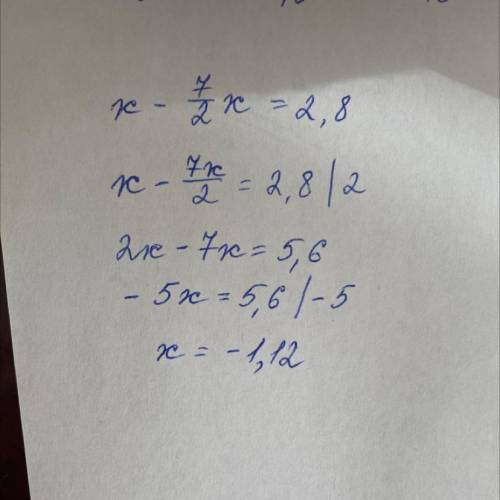 x - 7/2 x = 2,8
x - 7x/2 = 2,8 | 2
2x - 7x = 5,6
- 5x = 5,6 | -5
x = -1,12